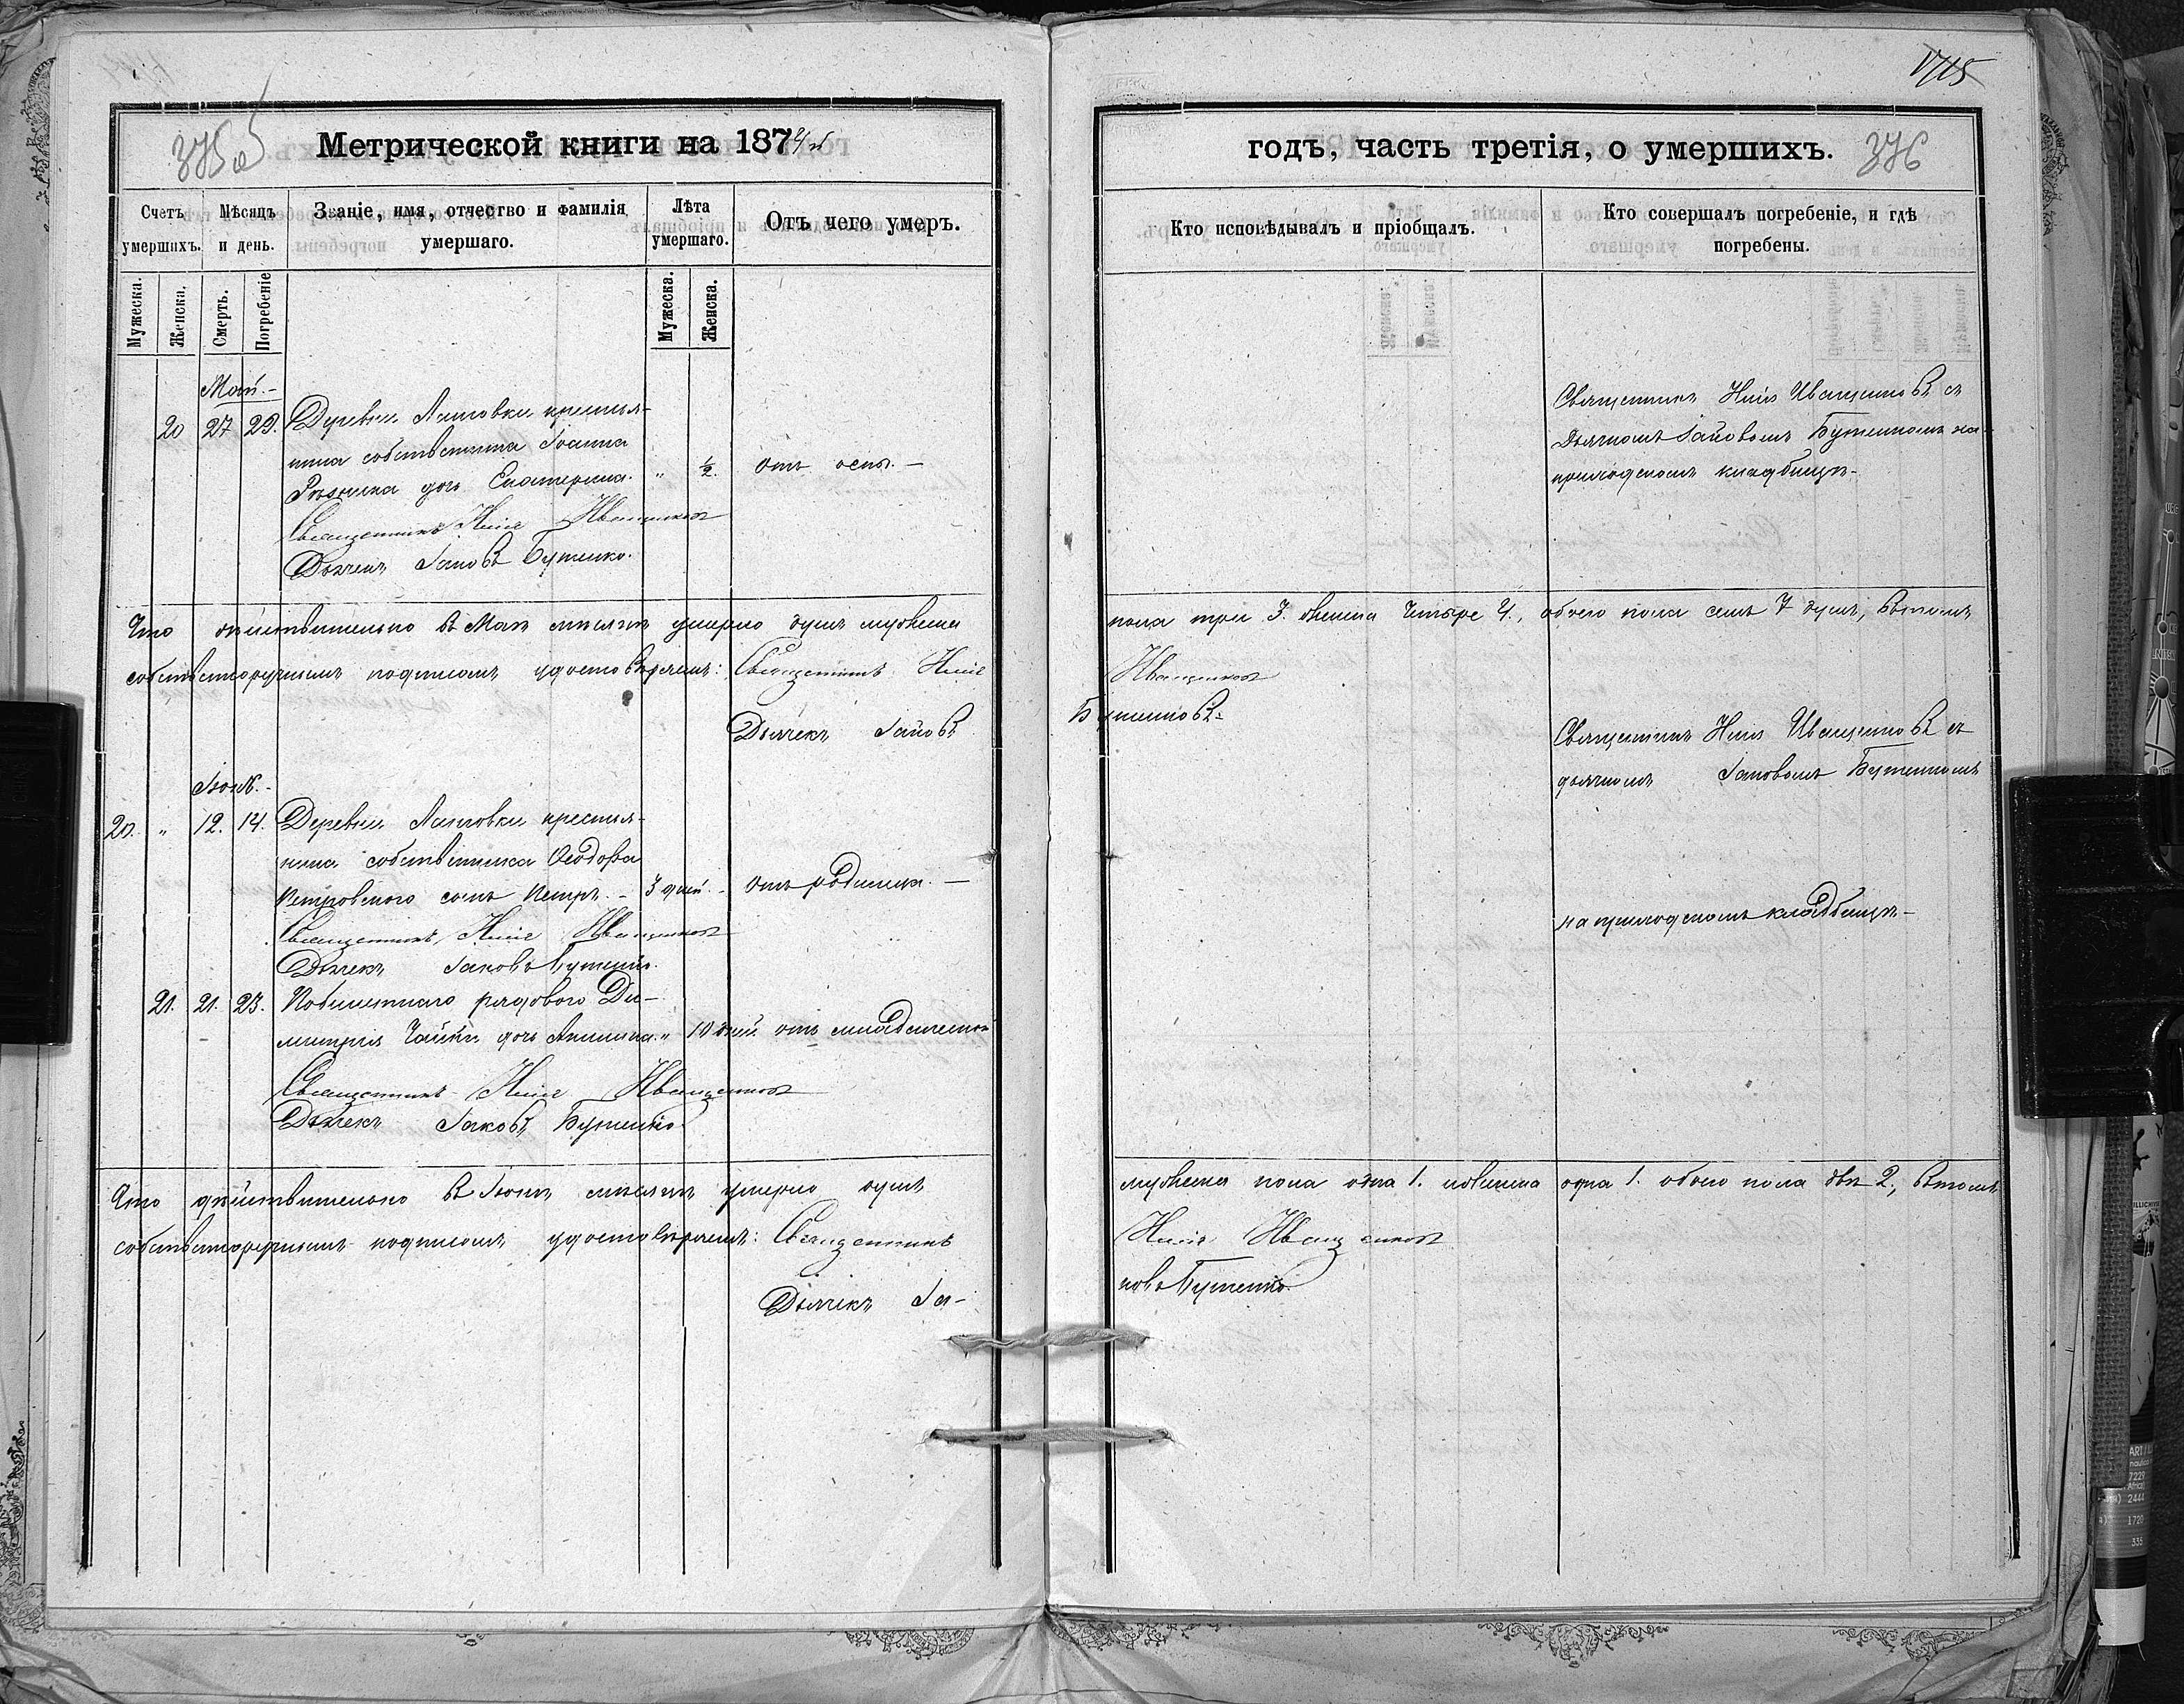 375 об
Метрической книги на 1874й
Счетъ умершихъ.
Мѣсяцъ и день.
Званіе, имя, отчество и фамилія умершаго.
Лѣта умершаго.
Отъ чего умеръ.
Мужеска.
Женска.
Смерть.
Погребеніе
Мужеска.
Женска.
Май.-
20 27 29. Деревни крестья-
нина собственника Іоанна
дочь Екатерина. " ½. отъ оспы. -
Священникъ Иванценковъ
Дьячекъ Іаковъ Бутенко.
Что дѣйствительно въ Маѣ мѣсяцѣ умерло душъ мужеска
собственоручнымъ подписомъ удостовѣряемъ: Священникъ
Дьячекъ Іаковъ
Іюнь.-
20. " 12. 14. Деревни крестья-
нина собственника Ѳеодора
Петровского сынъ Петръ. - 3 дней. - отъ родимца. -
Священникъ Иванценковъ
Дьячекъ Іаковъ Бутенко.
21. 21. 23. рядового Ди-
митрія Чайки дочь Акилина. " 10 дней отъ младенческой
Священникъ Иванценковъ
Дьячекъ Іаковъ Бутенко
Что дѣйствительно въ Іюнѣ мѣсяцѣ умерло душъ
собственоручнымъ подписомъ удостовѣряемъ: Священникъ
Дьячекъ Іа-
1715
годъ, часть третія, о умершихъ. 376
Кто исповѣдывалъ и пріобщалъ.
Кто совершалъ погребеніе, и гдѣ погребены.
Священникъ Иванценковъ съ
Дьячкомъ Іаковомъ Бутенкомъ на
приходскомъ кладбищѣ-
пола три 3. женска четыре 4., обоего пола семь 7 душъ, въ томъ
Иванценковъ
Бутенковъ
Священникъ Иванценковъ съ
дьячкомъ Іаковомъ Бутенкомъ
на приходскомъ кладбищѣ-
мужеска пола одна 1. женска одна 1. обоего пола двѣ 2., въ томъ
Иванценковъ
ковъ Бутенко.